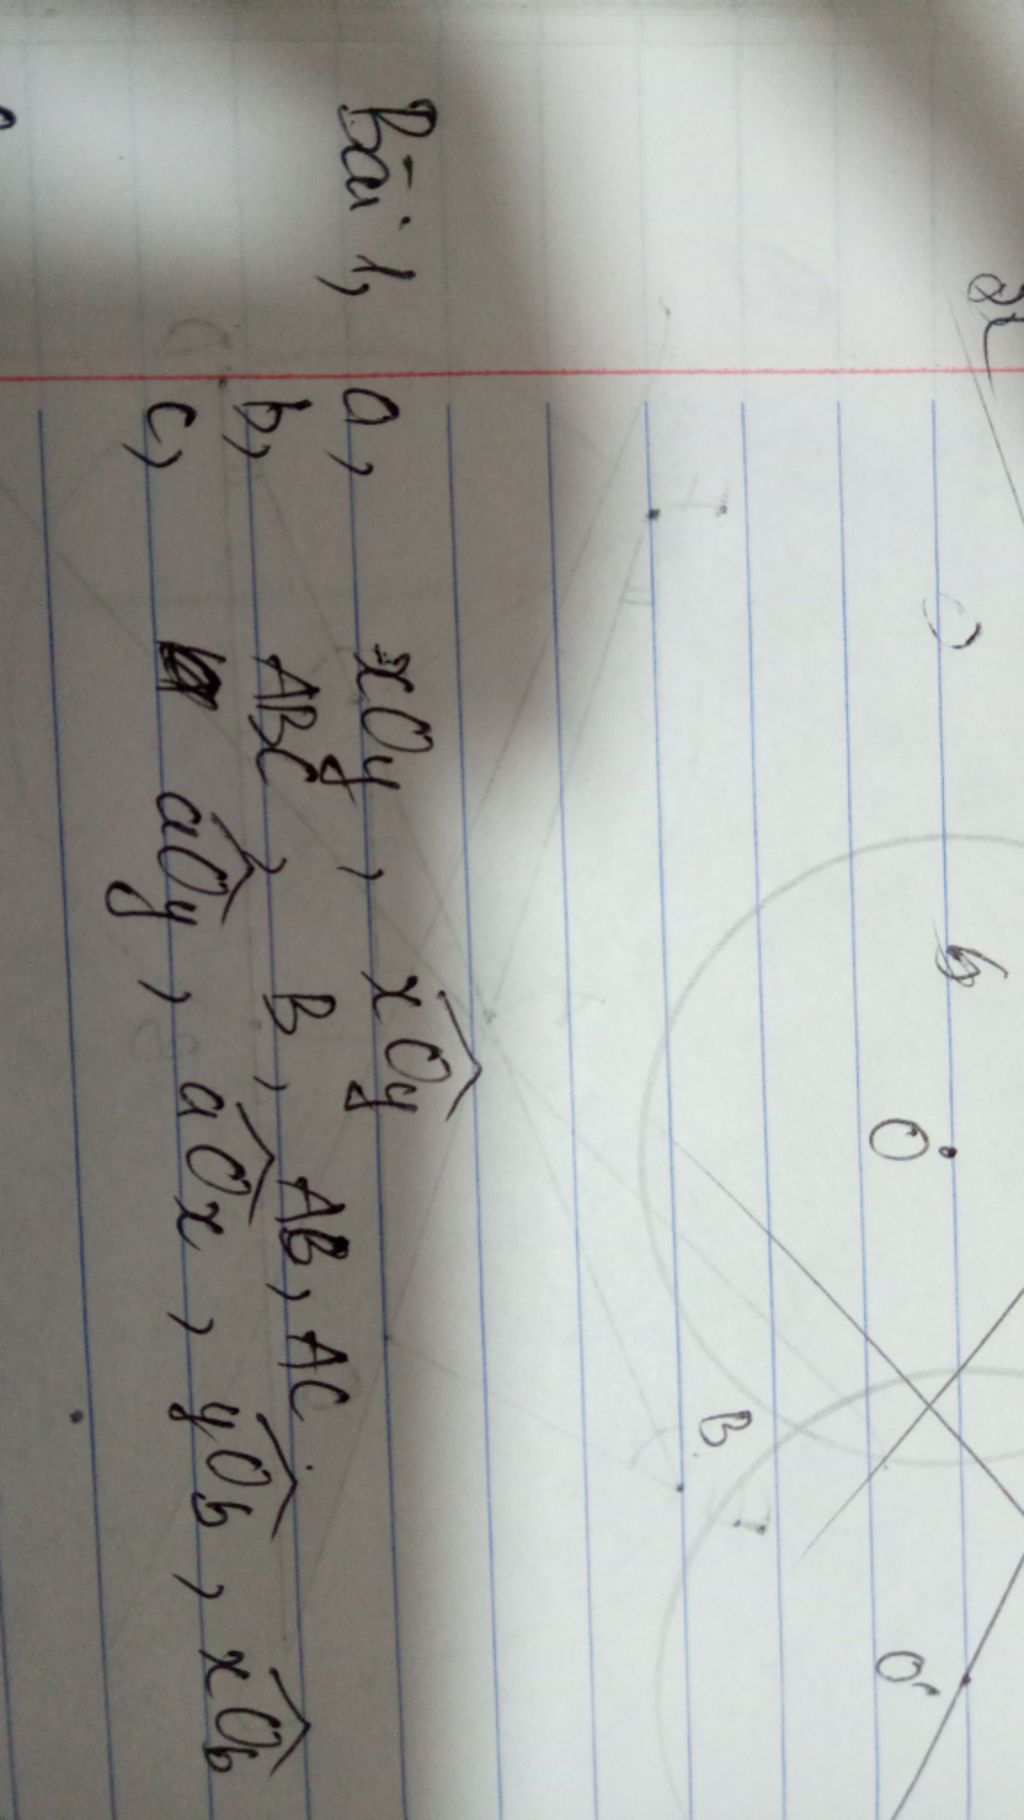 Bài 1,
a, xOy , \widehat{xOy}
b, ABC , B , AB , AC
c, \widehat{aOy} , \widehat{aOx} , \widehat{yOb} , \widehat{xOb}
x
b
O
B
O'